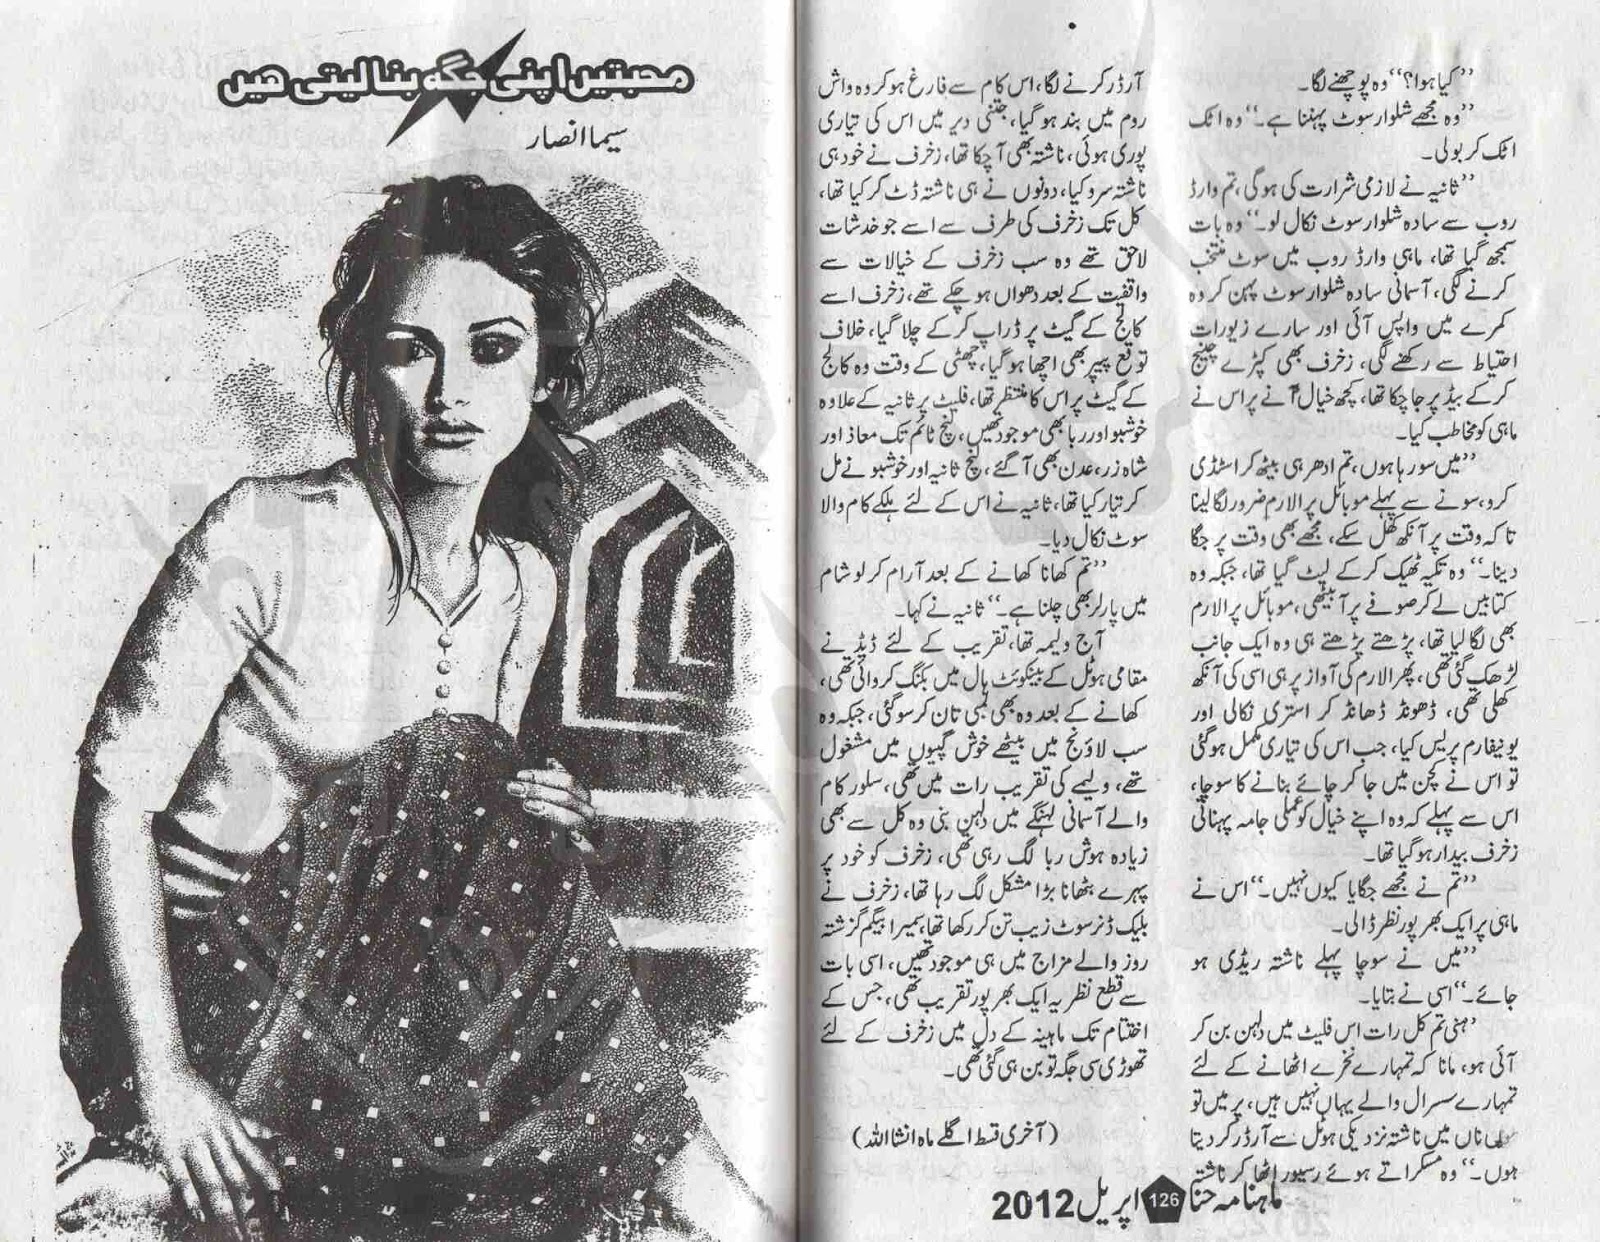 محبتیں اپنی جگہ بنا لیتی ہیں
سیما انصار
’’کیا ہوا؟‘‘ وہ پوچھنے لگا۔
’’وہ مجھے شلوار سوٹ پہننا ہے۔‘‘ وہ اٹک
اٹک کر بولی۔
’’ثانیہ نے لازمی شرارت کی ہو گی، تم وارڈ
روب سے سادہ شلوار سوٹ نکال لو۔‘‘ وہ بات
سمجھ گیا تھا، ماہی وارڈ روب میں سوٹ منتخب
کرنے لگی، آسمانی سادہ شلوار سوٹ پہن کر وہ
کمرے میں واپس آئی اور سارے زیورات
احتیاط سے رکھنے لگی، زخرف بھی کپڑے چینج
کر کے بیڈ پر جا چکا تھا، کچھ خیال آنے پر اس نے
ماہی کو مخاطب کیا۔
’’میں سو رہا ہوں، تم ادھر ہی بیٹھ کر اسٹڈی
کرو، سونے سے پہلے موبائل پر الارم ضرور لگا لینا
تا کہ وقت پر آنکھ کھل سکے، مجھے بھی وقت پر جگا
دینا۔‘‘ وہ تکیہ ٹھیک کر کے لیٹ گیا تھا، جبکہ وہ
کتابیں لے کر صوفے پر آ بیٹھی، موبائل پر الارم
بھی لگا لیا تھا، پڑھتے پڑھتے ہی وہ ایک جانب
لڑھک گئی تھی، پھر الارم کی آواز پر ہی اس کی آنکھ
کھلی تھی، ڈھونڈ ڈھانڈ کر استری نکالی اور
یونیفارم پریس کیا، جب اس کی تیاری مکمل ہو گئی
تو اس نے کچن میں جا کر چائے بنانے کا سوچا،
اس سے پہلے کہ وہ اپنے خیال کو عملی جامہ پہناتی
زخرف بیدار ہو گیا تھا۔
’’تم نے مجھے جگایا کیوں نہیں۔‘‘ اس نے
ماہی پر ایک بھر پور نظر ڈالی۔
’’میں نے سوچا پہلے ناشتہ ریڈی ہو
جائے۔‘‘ اس نے بتایا۔
’’ہنی تم کل رات اس فلیٹ میں دلہن بن کر
آئی ہو، مانا کہ تمہارے نخرے اٹھانے کے لئے
تمہارے سسرال والے یہاں نہیں ہیں، پر میں تو
ہوں ناں میں ناشتہ نزدیکی ہوٹل سے آرڈر کر دیتا
ہوں۔‘‘ وہ مسکراتے ہوئے رسیور اٹھا کر ناشتہ
آرڈر کرنے لگا، اس کام سے فارغ ہو کر وہ واش
روم میں بند ہو گیا، جتنی دیر میں اس کی تیاری
پوری ہوئی، ناشتہ بھی آ چکا تھا، زخرف نے خود ہی
ناشتہ سرو کیا، دونوں نے ہی ناشتہ ڈٹ کر کیا تھا،
کل تک زخرف کی طرف سے اسے جو خدشات
لاحق تھے وہ سب زخرف کے خیالات سے
واقفیت کے بعد دھواں ہو چکے تھے، زخرف اسے
کالج کے گیٹ پر ڈراپ کر کے چلا گیا، خلاف
توقع پیپر بھی اچھا ہو گیا، چھٹی کے وقت وہ کالج
کے گیٹ پر اس کا منتظر تھا، فلیٹ پر ثانیہ کے علاوہ
خوشبو اور ربا بھی موجود تھیں، لنچ ٹائم تک معاذ اور
شاہ زر، عدن بھی آ گئے، لنچ ثانیہ اور خوشبو نے مل
کر تیار کیا تھا، ثانیہ نے اس کے لئے ہلکے کام والا
سوٹ نکال دیا۔
’’تم کھانا کھانے کے بعد آرام کر لو شام
میں پارلر بھی چلنا ہے۔‘‘ ثانیہ نے کہا۔
آج ولیمہ تھا، تقریب کے لئے ڈیڈ نے
مقامی ہوٹل کے بینکوئٹ ہال میں بکنگ کروائی تھی،
کھانے کے بعد وہ بھی لمبی تان کر سو گئی، جبکہ وہ
سب لاؤنج میں بیٹھے خوش گپیوں میں مشغول
تھے، ولیمے کی تقریب رات میں تھی، سلور کام
والے آسمانی لہنگے میں دلہن بنی وہ کل سے بھی
زیادہ ہوش ربا لگ رہی تھی، زخرف کو خود پر
پہرے بٹھانا بڑا مشکل لگ رہا تھا، زخرف نے
بلیک ڈنر سوٹ زیب تن کر رکھا تھا، سمیرا بیگم گزشتہ
روز والے مزاج میں ہی موجود تھیں، اسی بات
سے قطع نظر یہ ایک بھر پور تقریب تھی، جس کے
اختتام تک ماہینہ کے دل میں زخرف کے لئے
تھوڑی سی جگہ تو بن ہی گئی تھی۔
(آخری قسط اگلے ماہ انشا اللہ)
ماہنامہ حنا 126 اپریل 2012